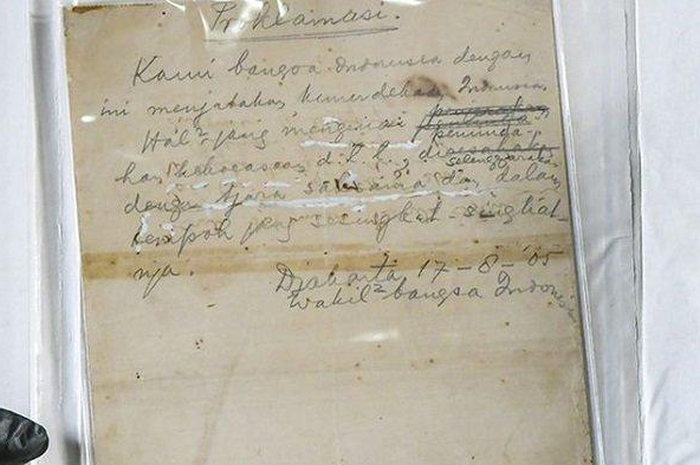 Proklamasi.
Kami bangsa Indonesia dengan
ini menjatakan kemerdekaan Indonesia.
Hal² jang mengenai
peminda-
han kekoeasaan d.l.l., diselenggarakan
dengan tjara saksama dan dalam
tempoh jang sesingkat-singkat-
nja.
Djakarta, 17 - 8 - '05
Wakil² bangsa Indonesia